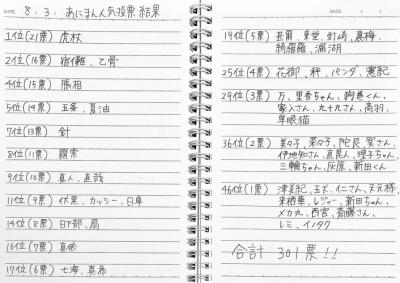 DATE 8・3・ あにまん人気投票 結果
1位(21票) 虎杖
2位(16票) 宿儺、乙骨
4位(15票) 脹相
5位(14票) 五条、夏油
7位(13票) 針
8位(11票) 羂索
9位(10票) 真人、直哉
11位(9票) 伏黒、カッシー、日車
14位(8票) 日下部、扇
16位(7票) 真依
17位(6票) 七海、真希
DATE
19位(5票) 甚爾、東堂、釘崎、裏梅、
綺羅羅、漏瑚
25位(4票) 花御、秤、パンダ、憲紀
29位(3票) 万、里香ちゃん、狗巻くん、
家入さん、九十九さん、高羽、
単眼猫
36位(2票) 美々子、菜々子、陀艮、冥さん、
伊地知さん、直毘人、理子ちゃん、
三輪ちゃん、灰原、新田くん
46位(1票) 津美紀、玉犬、仁さん、天元様、
来栖華、レジィー、新田ちゃん、
メカ丸、西宮、斎藤さん、
レミ、イノタク
合計 301票!!